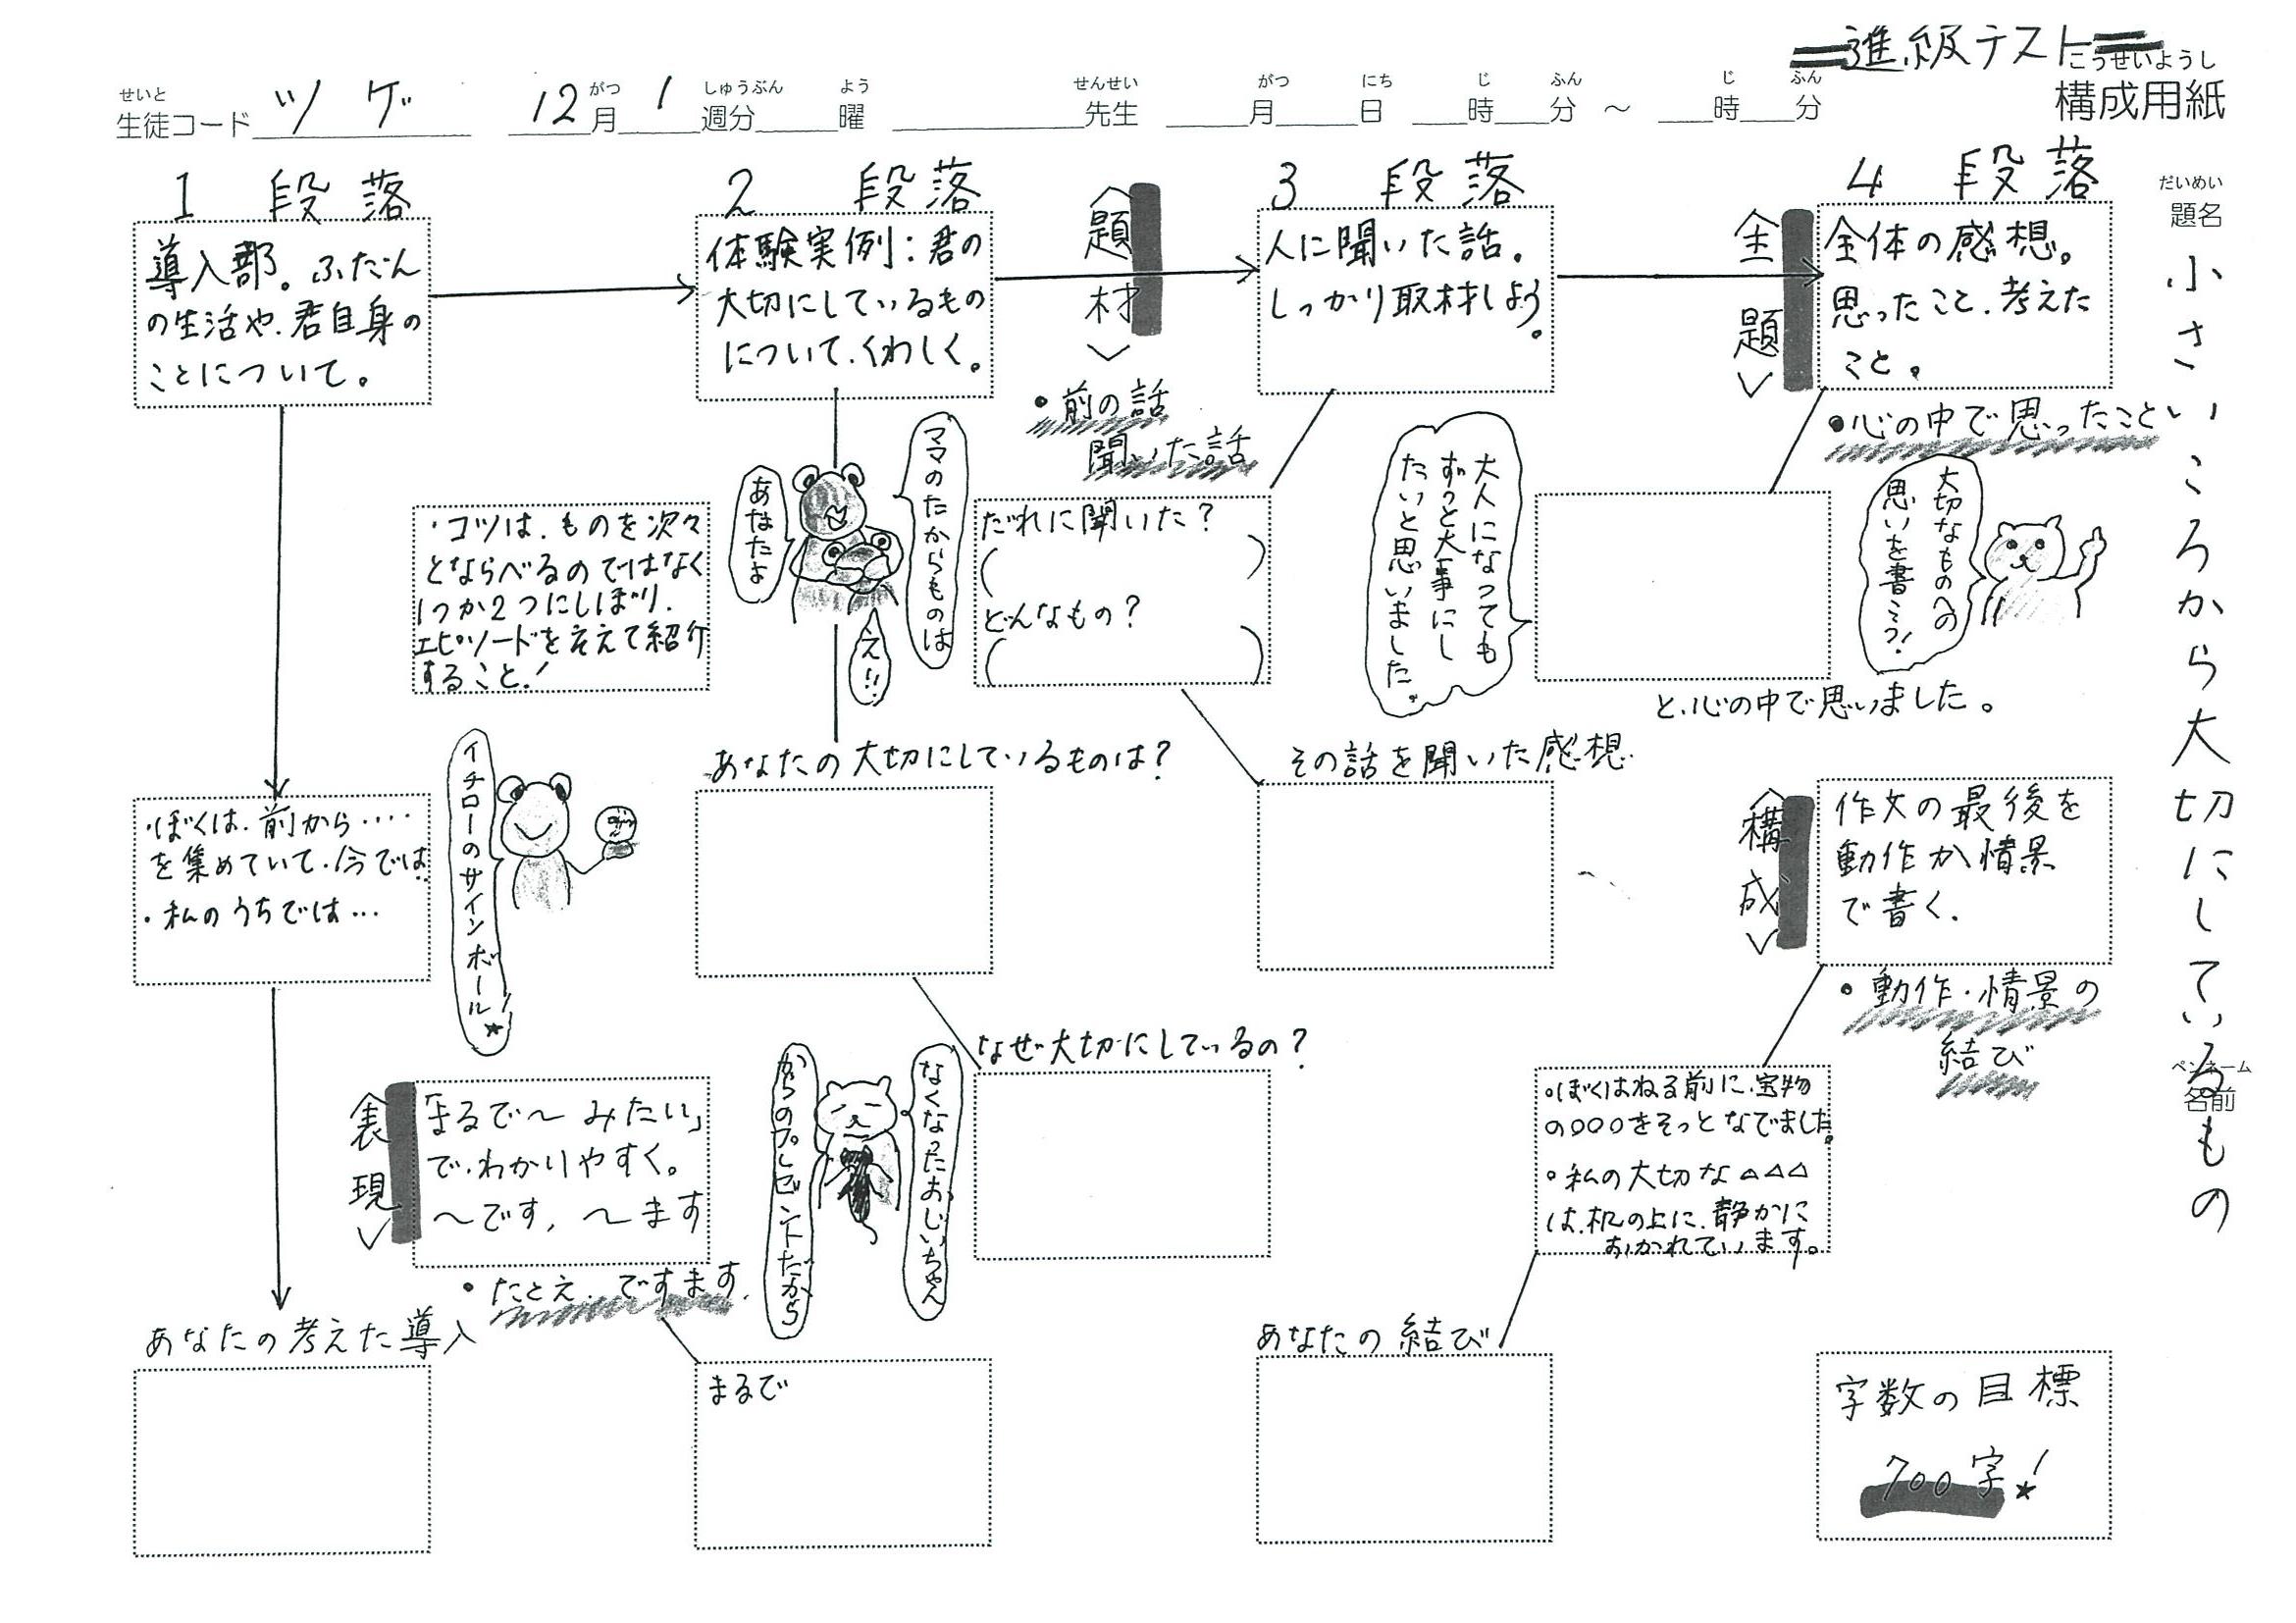 進級テスト
こうせいようし
構成用紙
せいと
生徒コード ツゲ
がつ しゅうぶん よう
12月 1週分 曜
せんせい
先生
がつ にち じ ふん じ ふん
月 日 時 分 〜 時 分
だいめい
題名
小さいころから大切にしているもの
ペンネーム
名前
1 段落
導入部。ふだん
の生活や、君自身の
ことについて。
・ぼくは、前から・・・・
を集めていて、今では、
・私のうちでは・・・
イチローのサインボール!★
あなたの考えた導入
2 段落
体験実例:君の
大切にしているもの
について、くわしく。
・コツは、ものを次々
とならべるのではなく
1つか2つにしぼり、
エピソードをそえて紹介
すること!
ママのたからものは
あなたよ
え!!
あなたの大切にしているものは?
なぜ大切にしているの?
なくなったおじいちゃん
からのプレゼントだから
〈表現〉
「まるで〜みたい」
で、わかりやすく。
〜です、〜ます
・たとえ、ですます、
まるで
〈題材〉
・前の話
聞いた話
3 段落
人に聞いた話。
しっかり取材しよう。
だれに聞いた?
( )
どんなもの?
( )
その話を聞いた感想
〈主題〉
4 段落
全体の感想。
思ったこと、考えた
こと。
・心の中で思ったこと
大切なものへの
思いを書こう!
大人になっても
ずっと大事にし
たいと思いました。
と、心の中で思いました。
〈構成〉
作文の最後を
動作か情景
で書く、
・動作・情景の
結び
・ぼくはねる前に、宝物
の○○○をそっとなでました。
・私の大切な△△△
は、机の上に、静かに
おかれています。
あなたの結び
字数の目標
700字!★